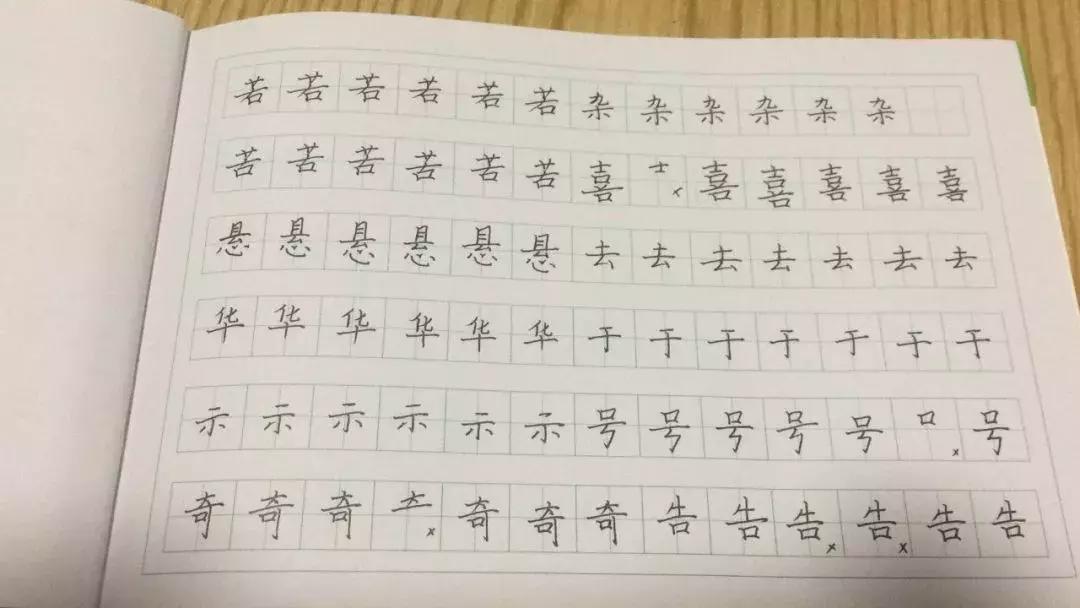 若若若若若若杂杂杂杂杂杂
苦苦苦苦苦苦喜士×喜喜喜喜喜
悬悬悬悬悬悬去去去去去去去
华华华华华华于于于于于于于
示示示示示示号号号号号口×号
奇奇奇×奇奇奇告告告×告×告告